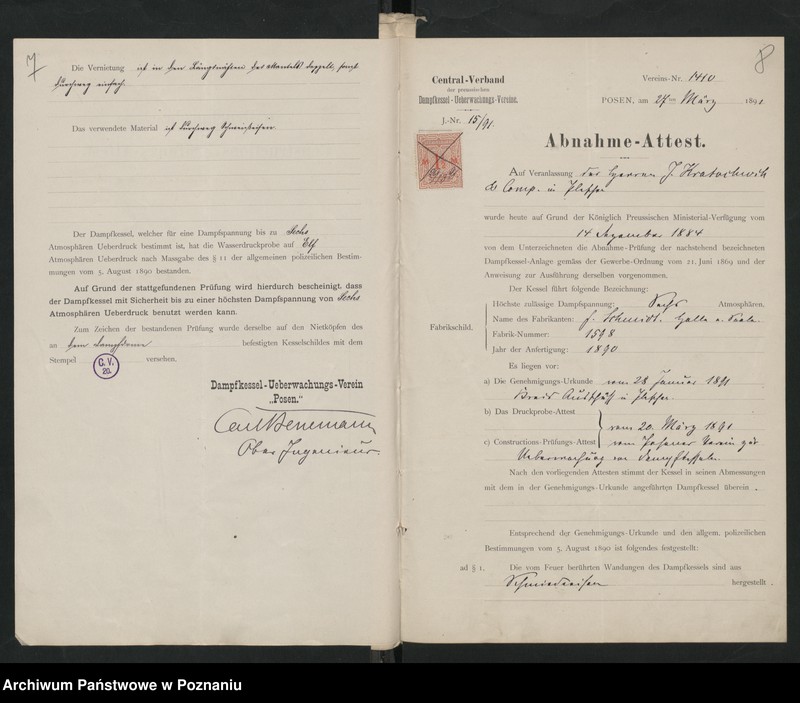 7
Die Vernietung ist in den Längsnähten des Mantels doppelt, sonst
durchweg einfach.
Das verwendete Material ist durchweg Schweisseisen.
Der Dampfkessel, welcher für eine Dampfspannung bis zu Sechs
Atmosphären Ueberdruck bestimmt ist, hat die Wasserdruckprobe auf Elf
Atmosphären Ueberdruck nach Massgabe des § 11 der allgemeinen polizeilichen Bestim-
mungen vom 5. August 1890 bestanden.
Auf Grund der stattgefundenen Prüfung wird hierdurch bescheinigt, dass
der Dampfkessel mit Sicherheit bis zu einer höchsten Dampfspannung von Sechs
Atmosphären Ueberdruck benutzt werden kann.
Zum Zeichen der bestandenen Prüfung wurde derselbe auf den Nietköpfen des
an dem Dampfdome befestigten Kesselschildes mit dem
Stempel C.V. 20. versehen.
Dampfkessel-Ueberwachungs-Verein
„Posen."
Ober Ingenieur.
8
Central-Verband
der preussischen
Dampfkessel-Ueberwachungs-Vereine.
J.-Nr. 15/91.
Vereins-Nr. 1410
POSEN, am 24ten März 1891.
Abnahme-Attest.
Auf Veranlassung der Herren J. Hratochwih
& Comp. in
wurde heute auf Grund der Königlich Preussischen Ministerial-Verfügung vom
14 Dezember 1884
von dem Unterzeichneten die Abnahme-Prüfung der nachstehend bezeichneten
Dampfkessel-Anlage gemäss der Gewerbe-Ordnung vom 21. Juni 1869 und der
Anweisung zur Ausführung derselben vorgenommen.
Der Kessel führt folgende Bezeichnung:
Fabrikschild.
Höchste zulässige Dampfspannung: Sechs Atmosphären.
Name des Fabrikanten: F. Schmidt. Halle a. Saale.
Fabrik-Nummer: 1598
Jahr der Anfertigung: 1890
Es liegen vor:
a) Die Genehmigungs-Urkunde vom 28 Januar 1891
Kreis Ausschuss in
b) Das Druckprobe-Attest
vom 20. März 1891
c) Constructions-Prüfungs-Attest vom Posener Verein zur
Ueberwachung von Dampfkesseln.
Nach den vorliegenden Attesten stimmt der Kessel in seinen Abmessungen
mit dem in der Genehmigungs-Urkunde angeführten Dampfkessel überein .
Entsprechend der Genehmigungs-Urkunde und den allgem. polizeilichen
Bestimmungen vom 5. August 1890 ist folgendes festgestellt:
ad § 1. Die vom Feuer berührten Wandungen des Dampfkessels sind aus
Schmiedeeisen hergestellt .
Archiwum Państwowe w Poznaniu